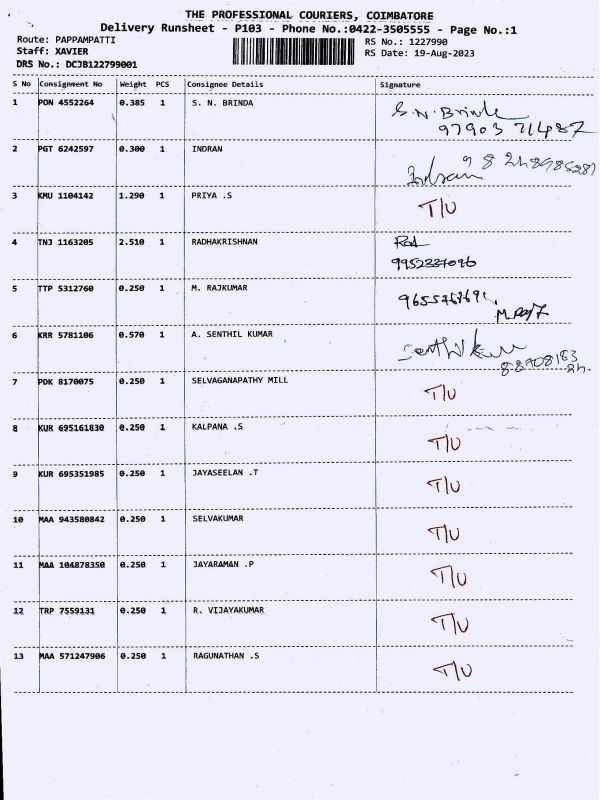 THE PROFESSIONAL COURIERS, COIMBATORE
Delivery Runsheet - P103 - Phone No.:0422-3505555 - Page No.:1
Route: PAPPAMPATTI RS No.: 1227990
Staff: XAVIER RS Date: 19-Aug-2023
DRS No.: DCJB122799001
S No Consignment No Weight PCS Consignee Details Signature
1 PON 4552264 0.385 1 S. N. BRINDA S.N. Brinda
97903 71487
2 PGT 6242597 0.300 1 INDRAN
Indran
3 KMU 1104142 1.290 1 PRIYA .S T/U
4 TNJ 1163205 2.510 1 RADHAKRISHNAN
5 TTP 5312760 0.250 1 M. RAJKUMAR
6 KRR 5781106 0.570 1 A. SENTHIL KUMAR
7 PDK 8170075 0.250 1 SELVAGANAPATHY MILL T/U
8 KUR 695161830 0.250 1 KALPANA .S T/U
9 KUR 695351985 0.250 1 JAYASEELAN .T T/U
10 MAA 943580842 0.250 1 SELVAKUMAR T/U
11 MAA 104878350 0.250 1 JAYARAMAN .P T/U
12 TRP 7559131 0.250 1 R. VIJAYAKUMAR T/U
13 MAA 571247906 0.250 1 RAGUNATHAN .S T/U